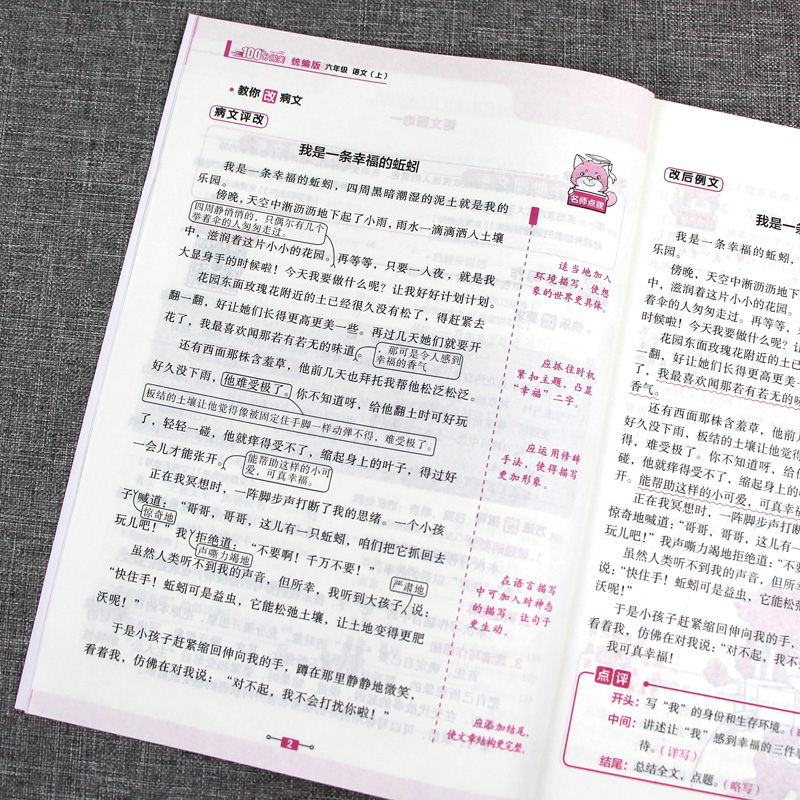 统编版 六年级 语文（上）
教你改病文
病文评改
我是一条幸福的蚯蚓
名师点拨
我是一条幸福的蚯蚓，四周黑暗潮湿的泥土就是我的
乐园。
傍晚，天空中淅沥沥地下起了小雨，雨水一滴滴洒入土壤
四周静悄悄的，只偶尔有几个
举着伞的人匆匆走过。
中，滋润着这片小小的花园。再等等，只要一人夜，就是我
大显身手的时候啦！今天我要做什么呢？让我好好计划计划。
花园东面玫瑰花附近的土已经很久没有松了，得赶紧去
翻一翻，好让她们长得更高更美一些。再过几天她们就要开
花了，我最喜欢闻那若有若无的味道。
，那可是令人感到
幸福的香气
还有西面那株含羞草，他前几天也拜托我帮他松泛松泛。
好久没下雨，他难受极了。你不知道呀，给他翻土时可好玩
板结的土壤让他觉得像被固定住手脚一样动弹不得，难受极了。
了，轻轻一碰，他就痒得受不了，缩起身上的叶子，得过好
一会儿才能张开。
能帮助这样的小可
爱，可真幸福。
正在我冥想时，一阵脚步声打断了我的思绪。一个小孩
子喊道：“哥哥，哥哥，这儿有一只蚯蚓，咱们把它抓回去
惊奇地
玩儿吧！”我拒绝道：“不要啊！千万不要！”
声嘶力竭地
虽然人类听不到我的声音，但所幸，我听到大孩子说：
严肃地
“快住手！蚯蚓可是益虫，它能松弛土壤，让土地变得更肥
沃呢！”
于是小孩子赶紧缩回伸向我的手，蹲在那里静静地微笑，
看着我，仿佛在对我说：“对不起，我不会打扰你啦！”
适当地加入
环境描写，使想
象的世界更具体。
应抓住时机
紧扣主题，凸显
“幸福”二字。
应运用修辞
手法，使得描写
更加形象。
在语言描写
中可加入对神态
的描写，让句子
更生动。
应添加结尾，
使文章结构更完整。
2
改后例文
我是一
我是一条幸福的蚯蚓，
乐园。
傍晚，天空中淅沥沥地下
中，滋润着这片小小的花园。
着伞的人匆匆走过。再等等，
时候啦！今天我要做什么呢？让
花园东面玫瑰花附近的土已
一翻，好让她们长得更高更美
了，我最喜欢闻那若有若无的
香气。
还有西面那株含羞草，他前
好久没下雨，板结的土壤让他觉
得，难受极了。你不知道呀，给
碰，他就痒得受不了，缩起身上的
开。能帮助这样的小可爱，可真幸福
正在我冥想时，一阵脚步声
惊奇地喊道：“哥哥，哥哥，这儿
吧！”我声嘶力竭地拒绝道：“不
虽然人类听不到我的声音，
说：“快住手！蚯蚓可是益虫，它能
沃呢！”
于是小孩子赶紧缩回伸向我的手，
看着我，仿佛在对我说：“对不起，我
我可真幸福！
点评
开头：写“我”的身份和生存环境。
中间：讲述让“我”感到幸福的三件
待。（详写）
结尾：总结全文，点题。（略写）